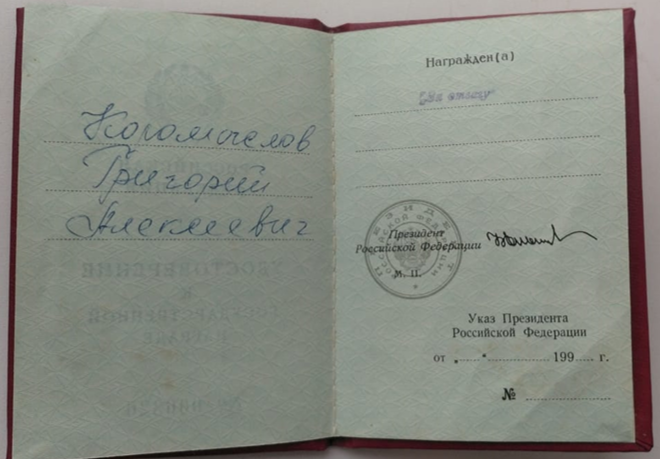 Коромыслов
Григорий
Алексеевич
Награжден(а)
Президент
Российской Федерации
М. П.
Указ Президента
Российской Федерации
от 199 г.
№